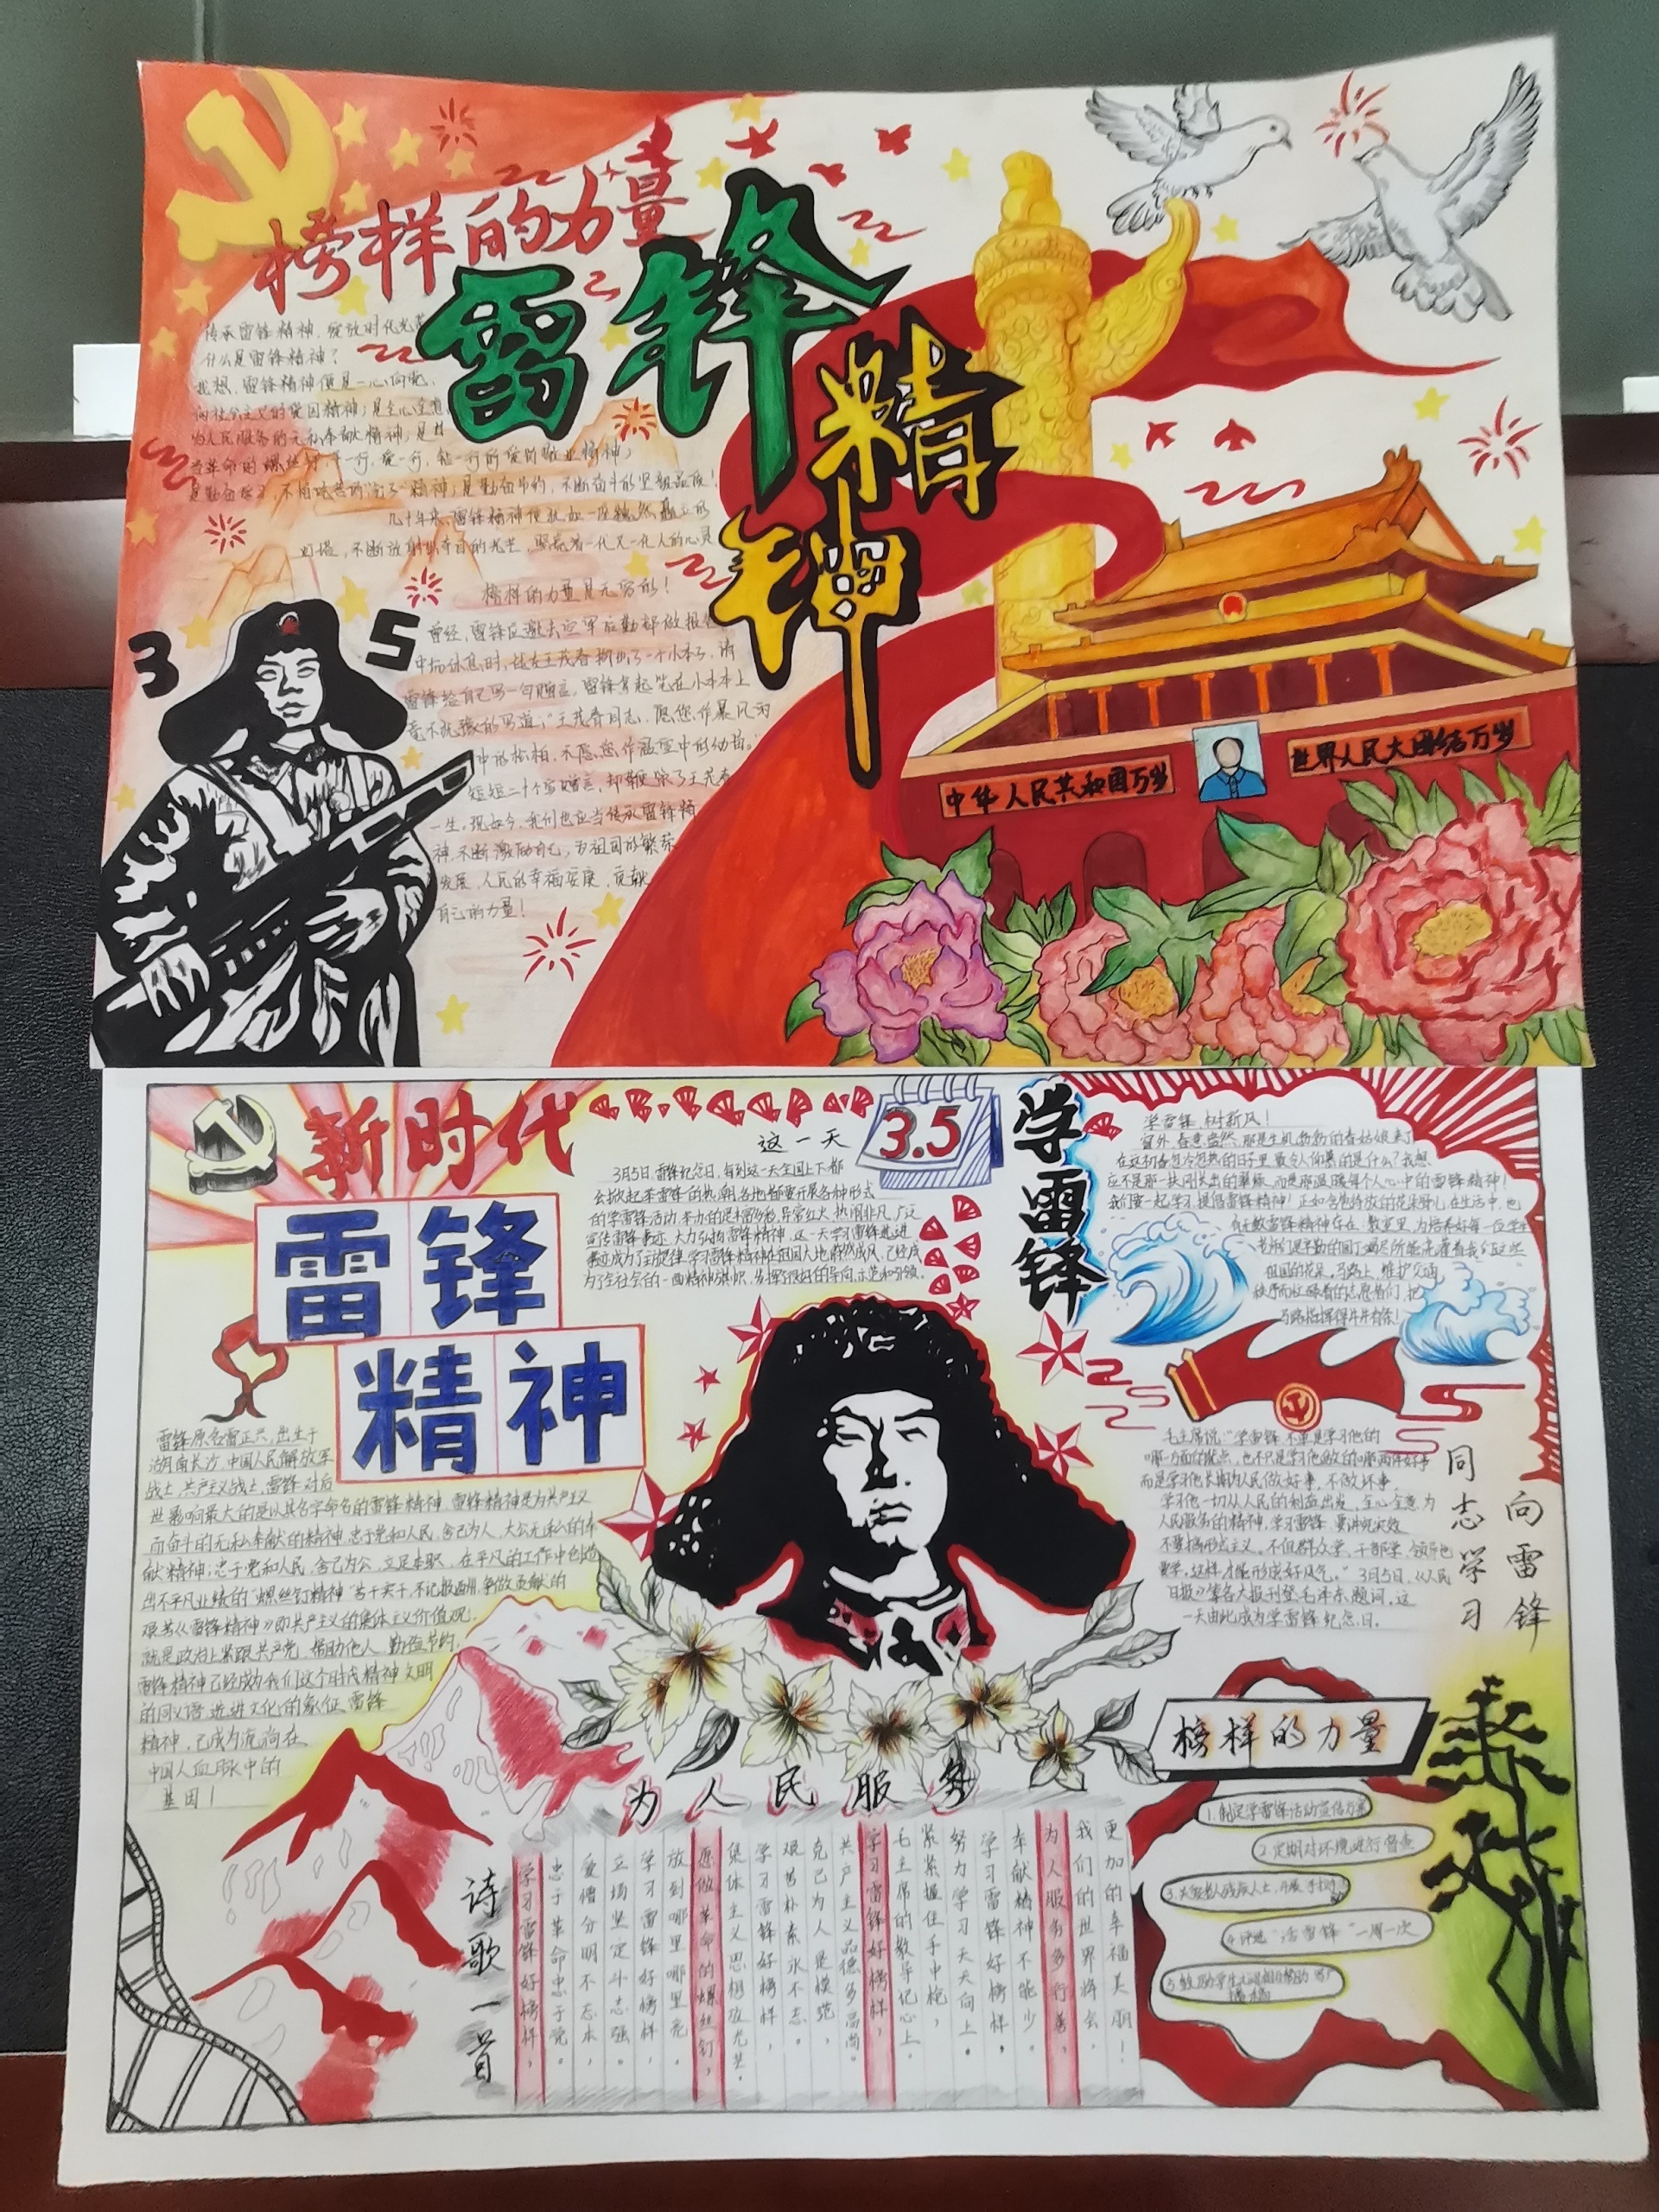 榜样的力量
雷锋
精
神
传承雷锋精神,绽放时代光芒
什么是雷锋精神?
我想,雷锋精神便是一心向党、
向社会主义的
为人民服务的无私奉献精神;是甘
当革命的螺丝钉,干一行,爱一行,钻一行的爱岗敬业精神;
几十年来,雷锋精神便犹如一座巍然矗立的
灯塔,不断放射出夺目的光芒,照亮着一代又一代人的心灵
榜样的力量是无穷的!
曾经,雷锋应邀去空军后勤部做报告
中场休息时,战友王茂春掏出了一个小本子,请
雷锋给自己写一句赠言,雷锋拿起笔在小本本上
毫不犹豫的写道:“王茂春同志,愿您作暴风雨
中的松柏,不愿您作温室中的幼苗。”
短短二十个字赠言,却鞭策了王茂春
一生。现如今,我们也应当传承雷锋精
神,不断激励自己,为祖国的繁荣
发展,人民的幸福安康,贡献
自己的力量!
3 5
中华人民共和国万岁
世界人民大团结万岁
新时代
雷锋
精神
这一天
3.5
3月5日,雷锋纪念日,每到这一天全国上下都
会掀起学雷锋的热潮,各地都要开展各种形式
的学雷锋活动,
宣传雷锋事迹,大力弘扬雷锋精神,这一天学习雷锋先进
事迹成为了主旋律,学习雷锋精神在祖国大地蔚然成风,已经成
为了全社会的一面精神旗帜,发挥了很好的导向、示范和引领。
学雷锋
学雷锋,树新风!
窗外,春意盎然,那是生机勃勃的春姑娘来了
在这初春忽冷忽热的日子里最令人仰慕的是什么?我想,
应不是那一抹刚长出的翠绿,而是那温暖每个人心中的雷锋精神!
我们要一起学习、提倡雷锋精神!正如含苞待放的花朵身心,在生活中,也
有无数雷锋精神存在,教室里,为培养好每一位学生
老师们是辛勤的园丁竭尽所能浇灌着我们这些
祖国的花朵,马路上,维护交通
秩序而红绿着的志愿者们,把
马路指挥得井井有条!
雷锋原名雷正兴,出生于
湖南长沙,中国人民解放军
战士,共产主义战士,雷锋对后
世影响最大的是以其名字命名的雷锋精神,雷锋精神是为共产主义
而奋斗的无私奉献的精神,忠于党和人民,舍己为人,大公无私的奉
献精神;忠于党和人民,舍己为公,立足本职、在平凡的工作中创造
出不平凡业绩的“螺丝钉精神”苦干实干,不计报酬,争做贡献的
艰苦《雷锋精神》即共产主义的集体主义价值观。
就是政治上紧跟共产党、帮助他人,勤俭节约,
雷锋精神已经成为我们这个时代精神文明
的同义语、先进文化的象征,雷锋
精神,已成为流淌在
中国人血脉中的
基因!
毛主席说:“学雷锋不单是学习他的
哪一方面的优点,也不只是学习他做的哪两件好事,
而是学习他长期为人民做好事,不做坏事,
学习他一切从人民的利益出发,全心全意为
人民服务的精神,学习雷锋要讲究实效
不要搞形式主义。不但群众学,干部学,领导也
要学,这样才能形成好风气。”3月5日,《人民
日报》等各大报刊登毛泽东题词,这
一天由此成为学雷锋纪念日。
向雷锋
同志学习
榜样的力量
1.制定学雷锋活动宣传方案
2.定期对环境进行督查
4.评选“活雷锋”一周一次
为人民服务
诗歌一首
学习雷锋好榜样,
忠于革命忠于党。
爱憎分明不忘本,
立场坚定斗志强。
学习雷锋好榜样,
放到哪里哪里亮
愿做革命的螺丝钉,
集体主义思想放光芒。
学习雷锋好榜样,
艰苦朴素永不忘。
克己为人是模范,
共产主义品德多高尚。
学习雷锋好榜样,
毛主席的教导记心上。
紧紧握住手中枪,
努力学习天天向上。
学习雷锋好榜样,
奉献精神不能少。
为人服务多行善,
我们的世界将会,
更加的幸福美丽!